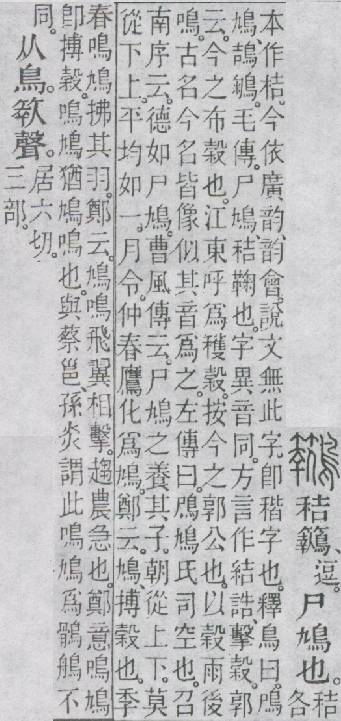 𪇆 秸𪇆、逗。尸鳩也。秸各
本作桔。今依廣韵韵會。說文無此字。卽稭字也。釋鳥曰。鳲
鳩、鴶鵴。毛傳。尸鳩、秸鞠也。字異音同。方言作結誥。擊穀。郭
云。今之布穀也。江東呼爲穫穀。按今之郭公也。以穀雨後
鳴。古名今名皆像似其音爲之。左傳曰。鳲鳩氏司空也。召
南序云。德如尸鳩。曹風傳云。尸鳩之養其子。朝從上下。莫
從下上。平均如一。月令。仲春鷹化爲鳩。鄭云。鳩、搏穀也。季
春鳴鳩拂其羽。鄭云。鳩鳴飛翼相擊。趨農急也。鄭意鳴鳩
卽搏穀。鳴鳩猶鳩鳴也。與蔡邕、孫炎謂此鳴鳩爲鶻鵃不
同。从鳥𥷚聲。居六切。
三部。